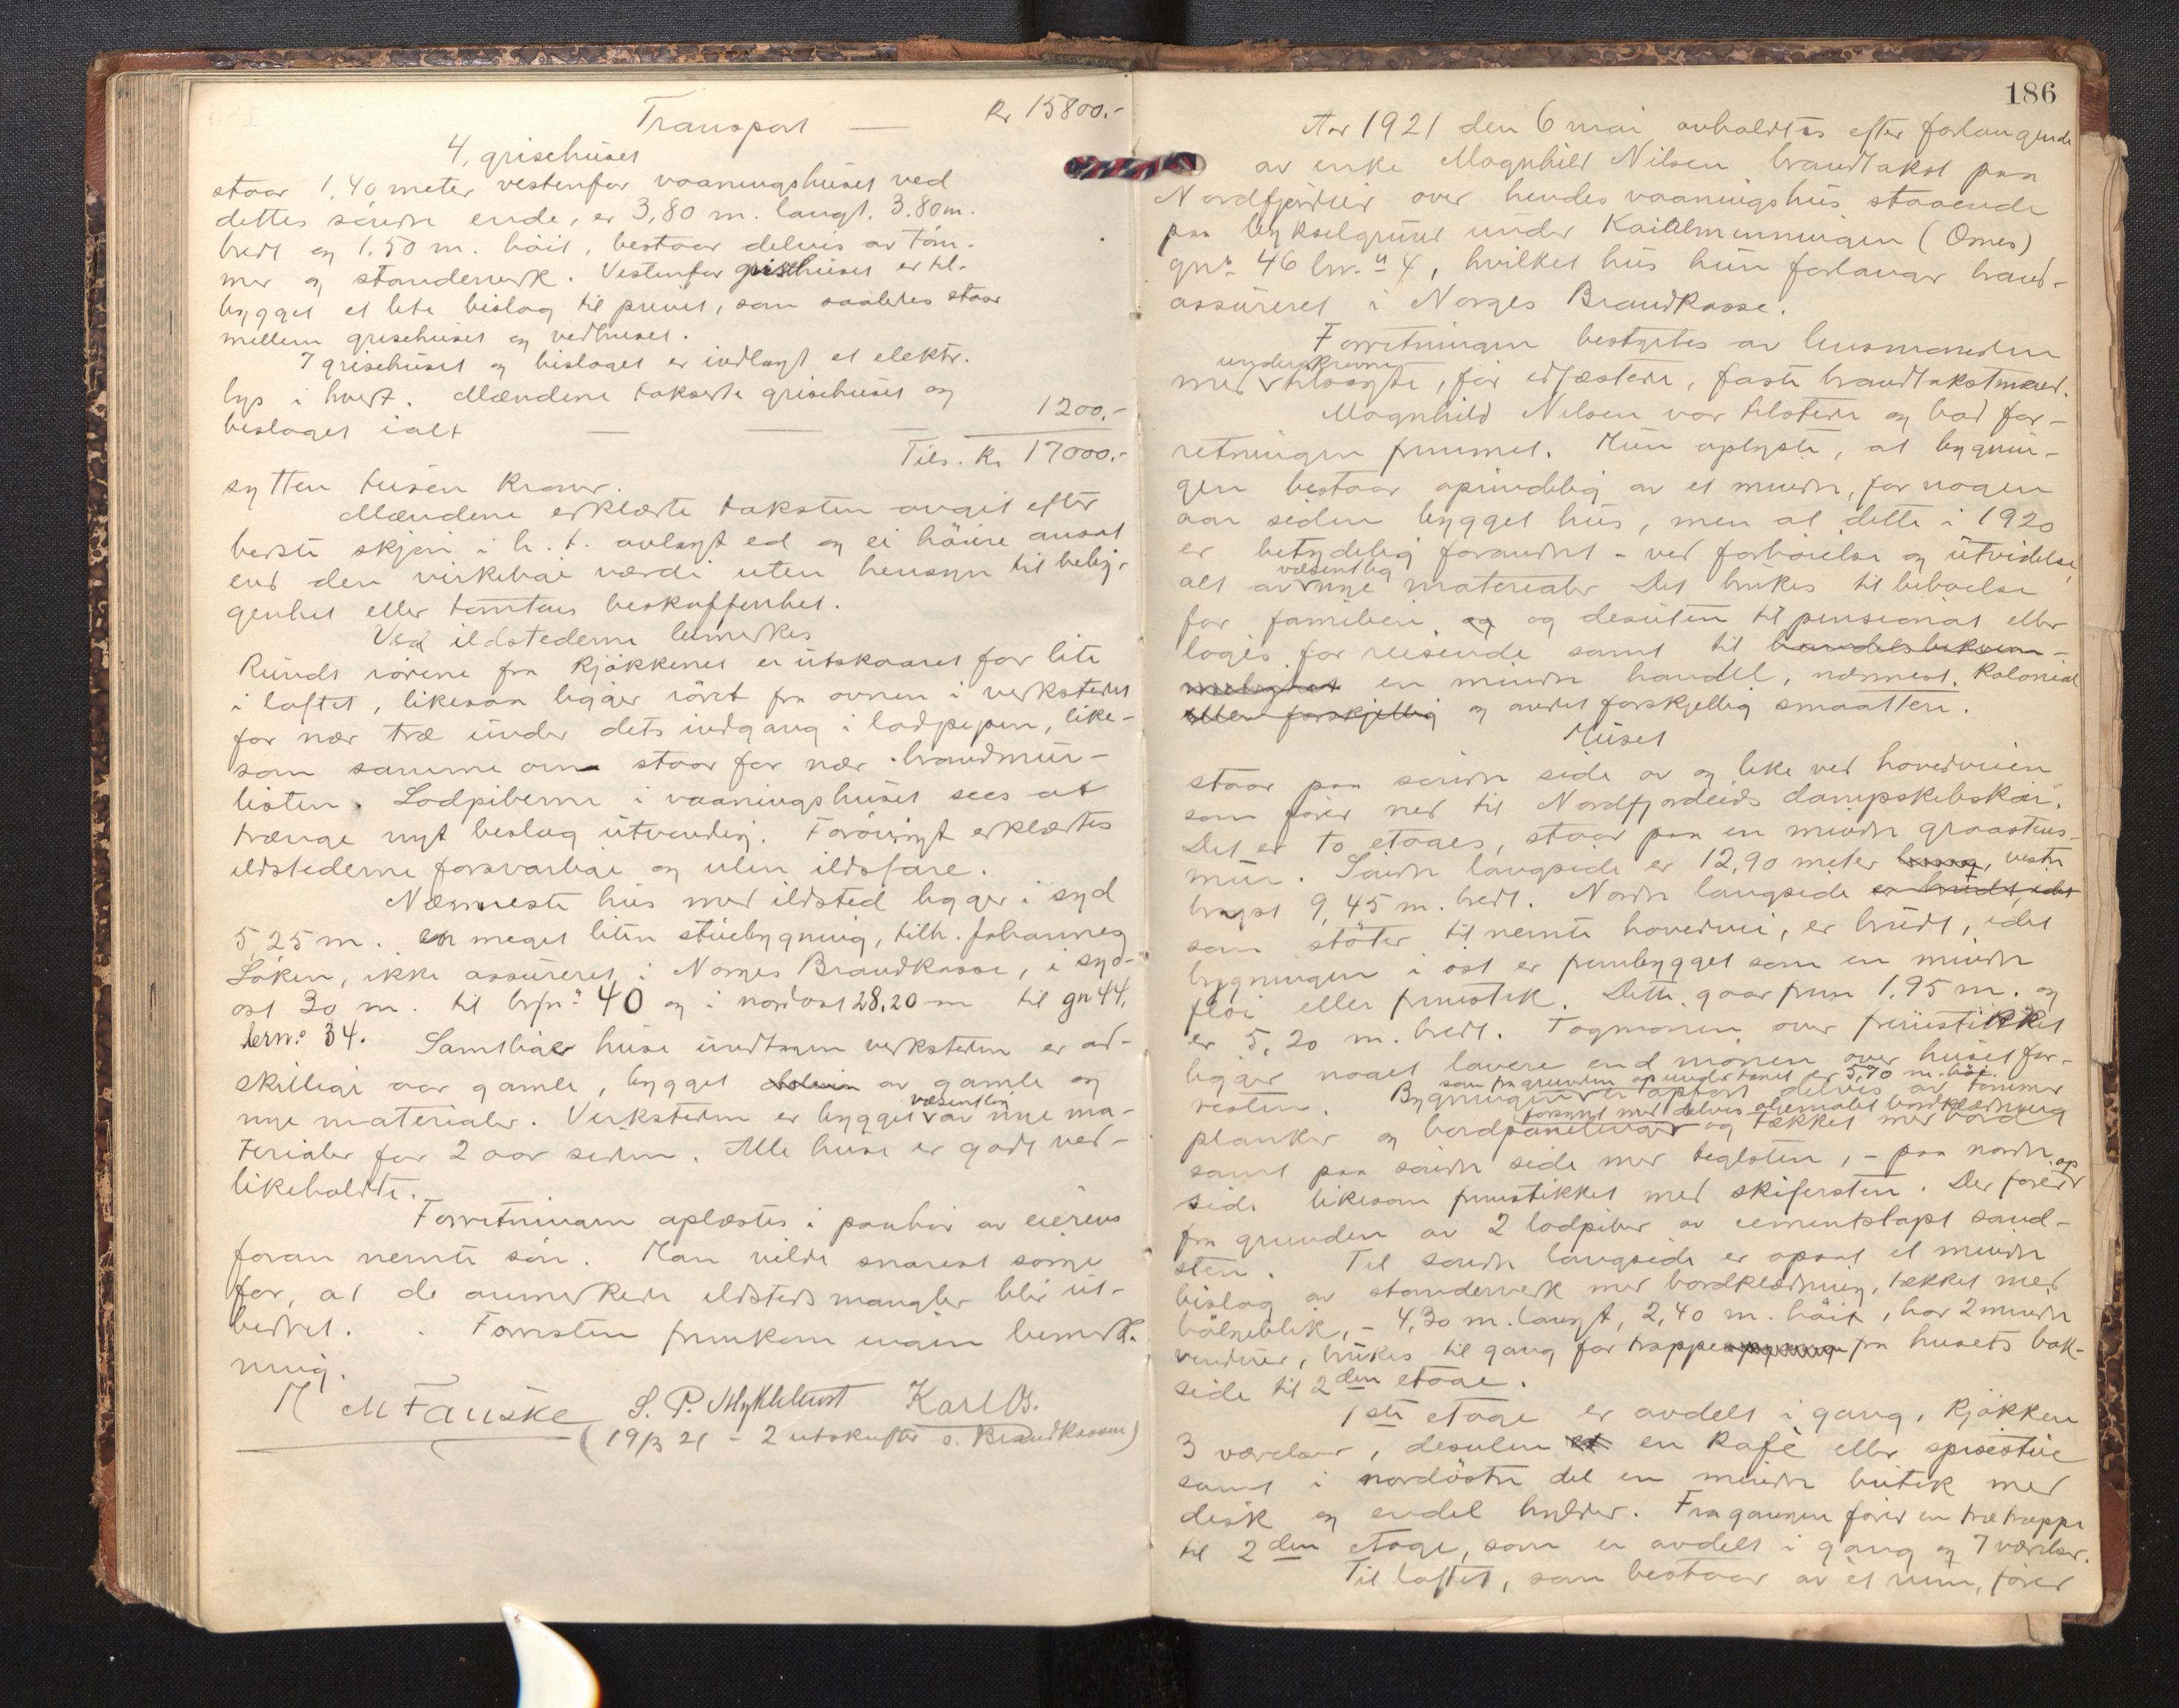 Transport — Kr 15800.-
4, grisehuset
staar 1,40 meter vestenfor vaaningshuset ved
dettes søndre ende, er 3,80 m. langt. 3.80 m.
bredt og 1.50 m. höit, bestaar delvis av töm-
mer og standerverk. Vestenfor grisehuset er til-
bygget et lite bislag til privet, som saaledes staar
mellem grisehuset og vedhuset.
I grisehuset og bislaget er indlagt et elektr.
lys i hvert. Mændene takserte grisehuset og
bislaget ialt — — 1200.-
Tils. Kr 17000.-
sytten tusen kroner.
Mændene erklærte taksten avgit efter
bedste skjön i h. t. avlagt ed og ei höiere ansat
end den virkelige værdi uten hensyn til belig-
genhet eller tomtens beskaffenhet.
Ved ildstederne bemerkes
Rundt rörene fra kjökkenet er utskaaret for lite
i loftet, likesaa ligger röret fra ovnen i verkstedet
for nær træ under dets indgang i lodpipen, like-
som samme ovn staar for nær brandmur-
listen. Lodpiberne i vaaningshuset sees at
trænge nyt beslag utvendig. Forövrigt erklærtes
ildstederne forsvarlige og uten ildsfare.
Nærmeste hus med ildsted ligger i syd
5,25 m. en meget liten stuebygning, tilh. Johannes
Löken, ikke assureret i Norges Brandkasse, i syd-
ost 30 m. til brfnr 40 og i nordost 28,20 m til gn 44,
brn.o 34. Samtlige huse undtagen verkstedet er ad-
skillige aar gamle, bygget av gamle og
nye materialer. Verkstedet er bygget væsentlig av nye ma-
terialer for 2 aar siden. Alle huse er godt ved-
likeholdte.
Forretningen oplæstes i paahör av eierens
foran nevnte sön. Han vilde snarest sörge
for, at de anmerkede ildstedsmangler blir ut-
bedret. Forresten fremkom ingen bemerk-
ning.
M Fauske S. P. Myklebust Karl Os.
(19/3 21 - 2 utskrifter s. Brandkassen)
186
Aar 1921 den 6 mai avholdtes efter forlangende
av enke Magnhild Nilsen brandtakst paa
Nordfjordeid over hendes vaaningshus staaende
paa bykselgrund under (Omes)
gnr. 46 brnr. 4, hvilket hus hun forlanger brand-
assureret i Norges Brandkasse.
Forretningen bestyrtes av lensmanden
med underskrevne tilsagte, för edfæstede, faste brandtakstmænd.
Magnhild Nilsen var tilstede og bad for-
retningen fremmet. Hun oplyste, at bygnin-
gen bestaar oprindelig av et mindre, for nogen
aar siden bygget hus, men at dette i 1920
er betydelig forandret - ved forhöielse og utvidelse,
alt av væsentlig nye materialer. Det brukes til beboelse
for familien og desuten til pensionat eller
logis for reisende samt til handelsbekvem-
melighet en mindre handel, nærmest kolonial
eller forskjellig og andet forskjellig smaatteri.
Huset
staar paa söndre side av og like ved hovedveien
som förer ned til Nordfjordeids dampskibskai.
Det er to etages, staar paa en mindre graastens-
mur. Söndre langside er 12,90 meter lang, vestre
bryst 9,45 m. bredt. Nordre langside er brudt, idet
som stöter til nevnte hovedvei, er brudt, idet
bygningen i öst er frembygget som en mindre
flöi eller frustik. Dette gaar frem 1,95 m. og
er 5,20 m. bredt. Tagmönen over frustikket
ligger noget lavere end mönen over huset for-
resten. Bygningen som fra grunden op under taket er 5,70 m. höi er opfört delvis av tömmer
planker og bord forsynt med delvis oljemalet bordklædning og tækket med bord
samt paa söndre side med teglsten, - paa nordre
side likesom frustikket med skifersten. Der förer op
fra grunden av 2 lodpiber av cementstöpt sand-
sten. Til söndre langside er opsat et mindre
bislag av standerverk med bordklædning, tækket med
bölgeblik, - 4,30 m. langt, 2,40 m. höit, har 2 mindre
vinduer, brukes til gang for trappe fra husets bak-
side til 2den etage.
1ste etage er avdelt i gang, kjökken
3 værelser, desuten et en kafè eller spisestue
samt i nordöstre del en mindre butik med
disk og endel hylder. Fra gangen förer en trætrappe
til 2den etage, som er avdelt i gang og 7 værelser.
Til loftet, som bestaar av et rum, förer